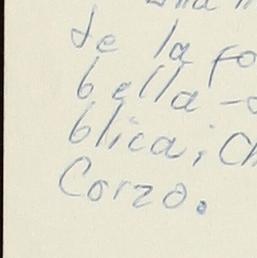 de la fo
bella-
blica; Ch
Corzo.